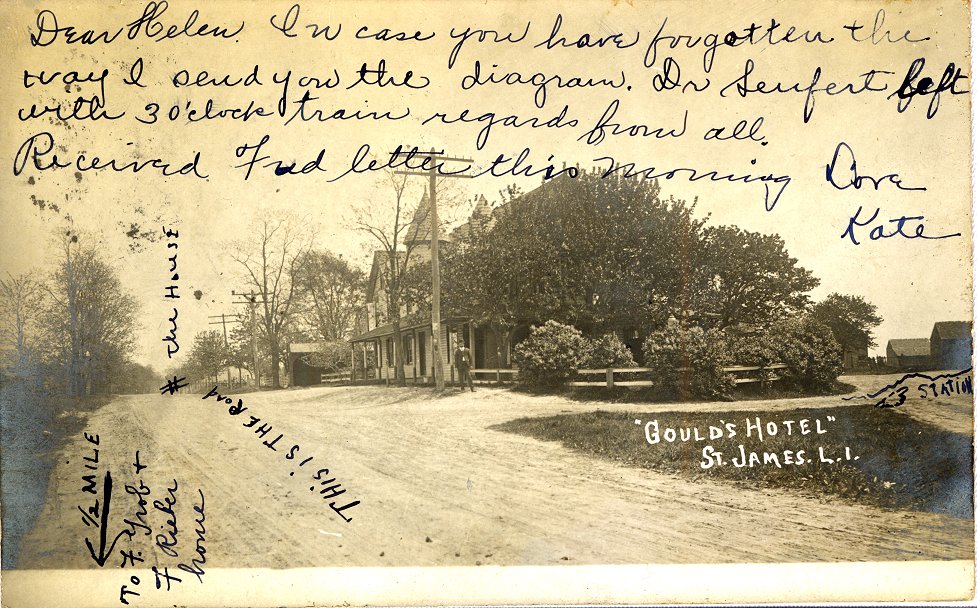 Dear Helen. In case you have forgotten the
way I send you the diagram. Dr Senfert left
with 3 o'clock train regards from all.
Received Fred letter this morning Love
Kate
# the House
THIS IS THE ROAD
STATION
"GOULD'S HOTEL"
ST. JAMES. L.I.
1/2 MILE
To F. Grob +
F Rieber
home